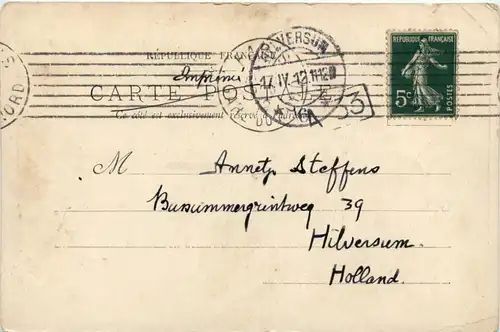 RÉPUBLIQUE FRANÇAISE
Imprimé
CARTE POSTALE
Ce côté est exclusivement réservé à l'adresse
HILVERSUM
17.IV.12
RÉPUBLIQUE FRANÇAISE
5c
POSTES
M Annetje Steffens
Bussummergrintweg 39
Hilversum.
Holland.